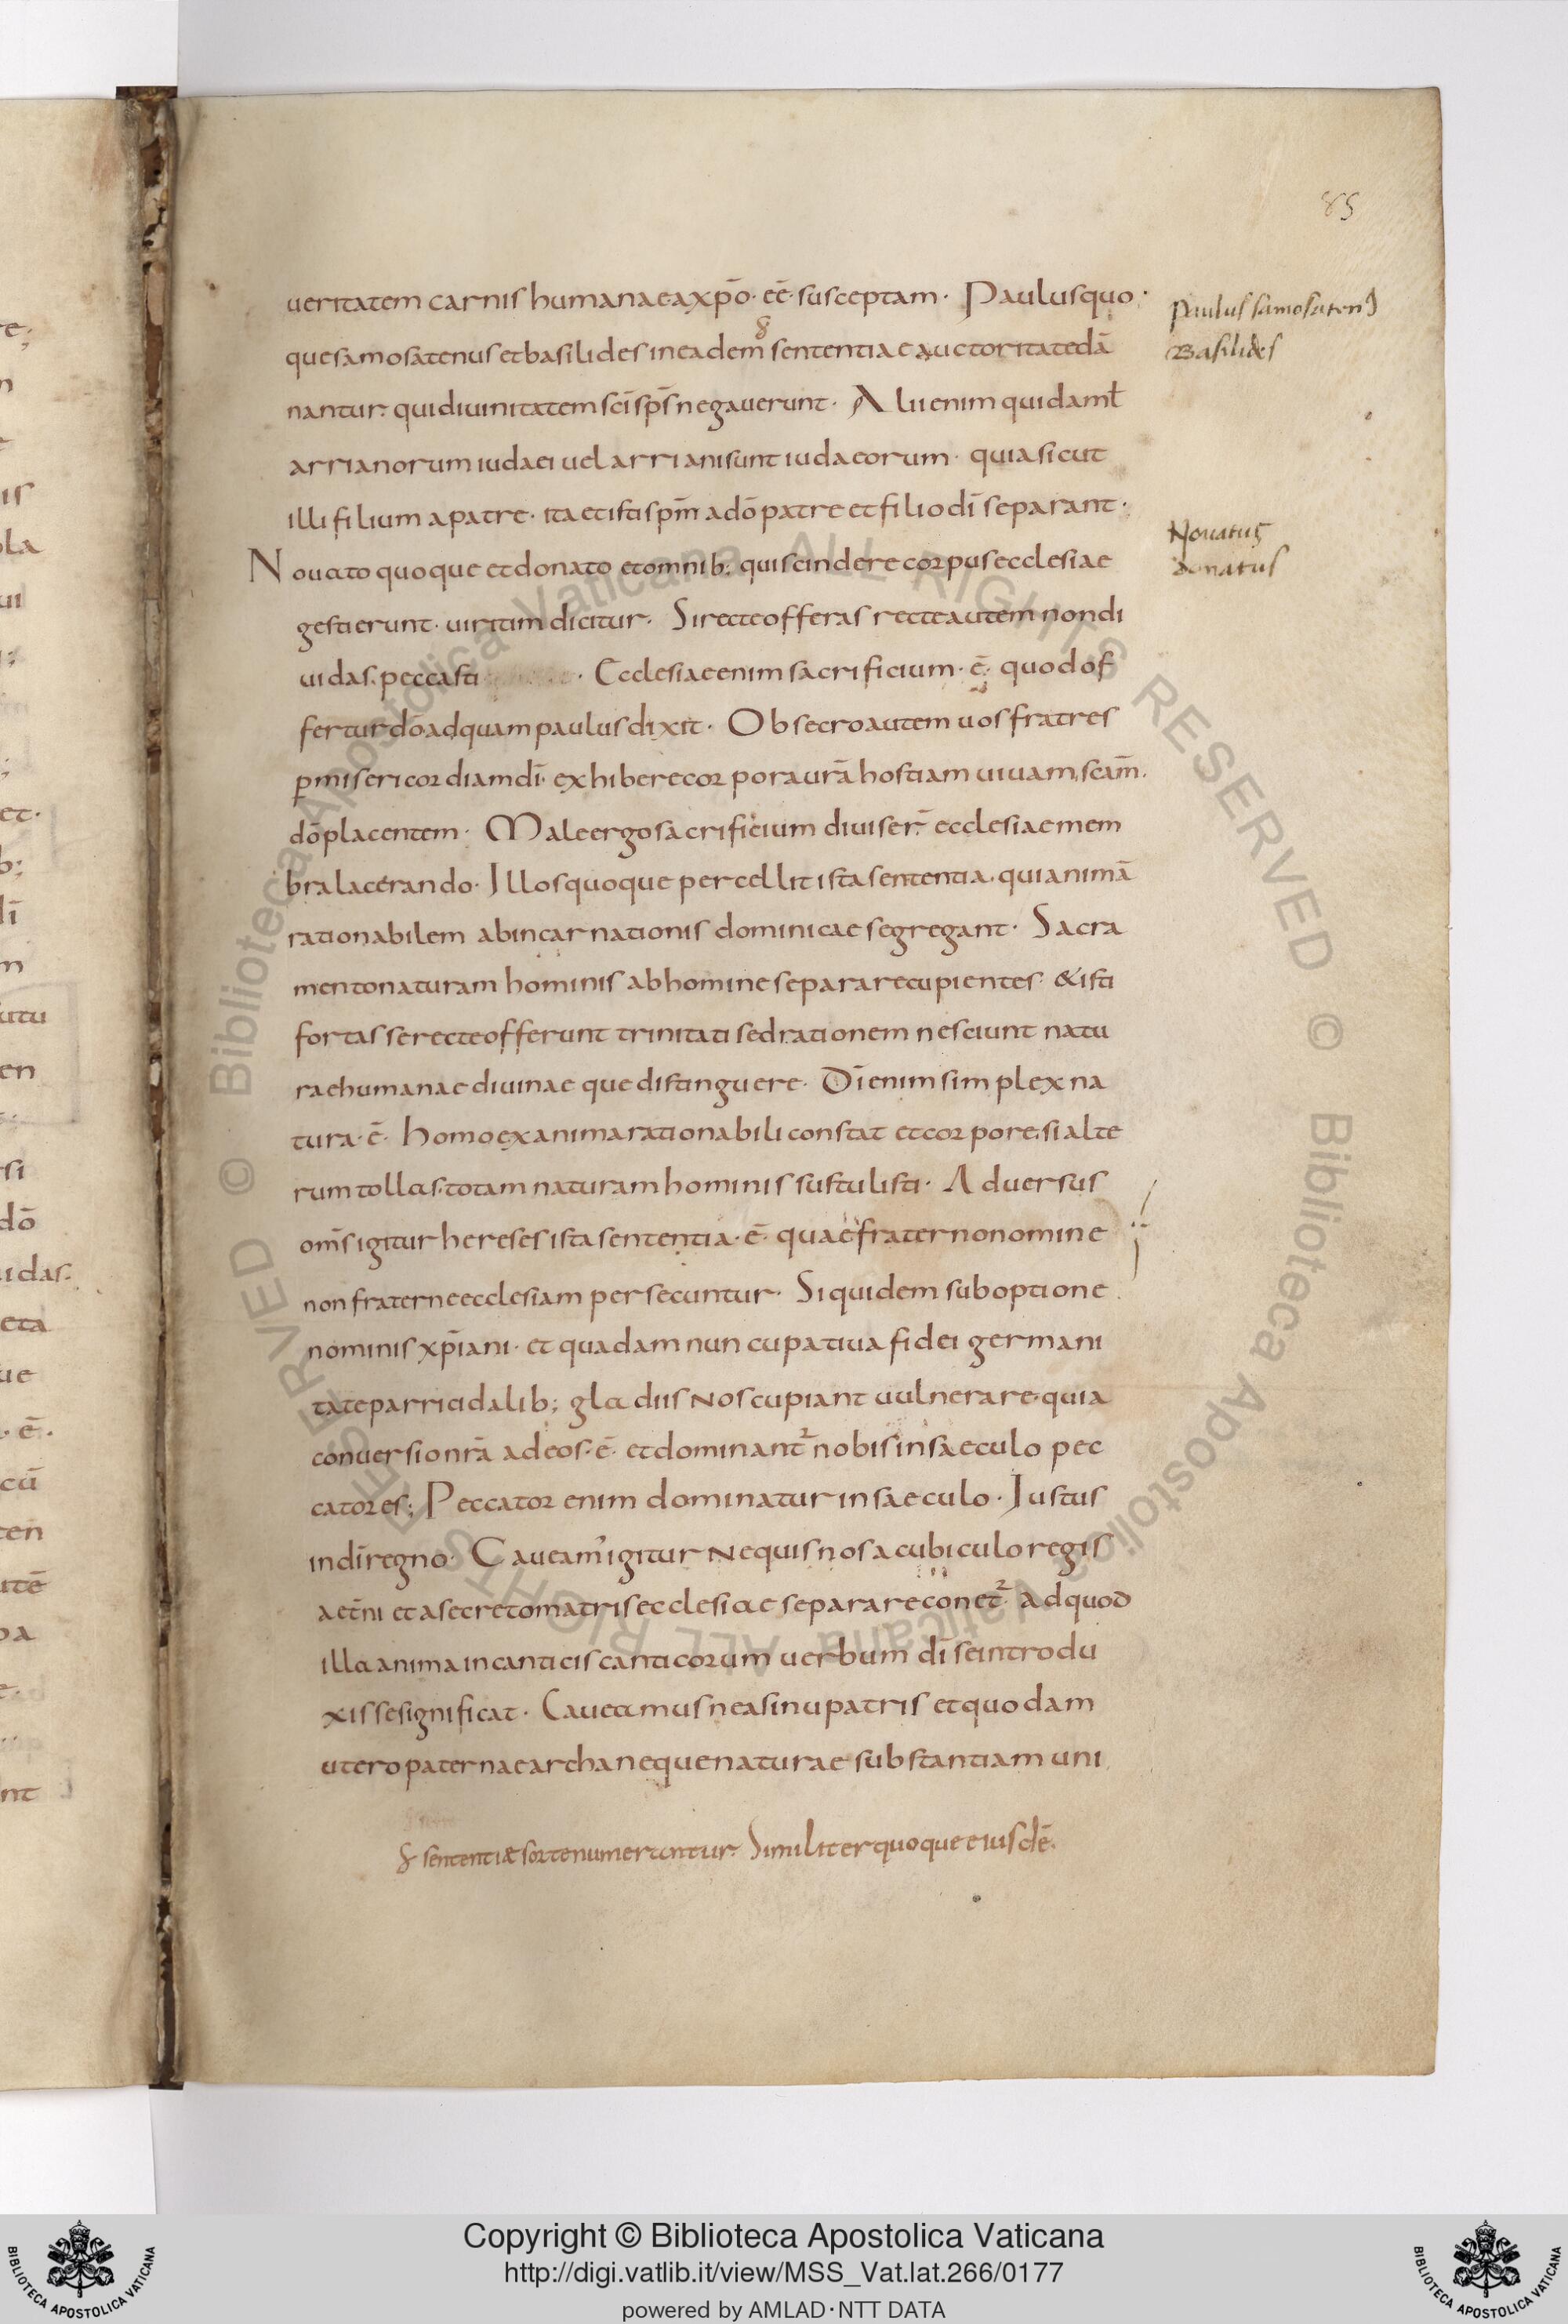 85
ueritatem carnis humanae a xp̄o · eē · susceptam · Paulus quo
que samosatenus et basilides in eadem sententiae auctoritate dā
nantur · qui diuinitatem sc̄i sp̄s negauerunt · Alii enim quidam ł
arrianorum iudaei uel arriani sunt iudaeorum · quia sicut
illi filium a patre · ita et isti sp̄m a dō patre et filio dī separant ·
Nouato quoque et donato et omnib; qui scindere corpus ecclesiae
gestierunt · uiritim dicitur · Si recte offeras recte autem non di
uidas · peccasti · Ecclesiae enim sacrificium · ē · quod of
fertur dō ad quam paulus dixit · Obsecro autem uos fratres
p misericordiam dī · exhibere corpora ur̄a hostiam uiuam, scām ·
dō placentem · Male ergo sacrificium diuiser̄ ecclesiae mem
bra lacerando · Illos quoque percellit ista sententia · qui animā
rationabilem ab incarnationis dominicae segregant · Sacra
mento naturam hominis ab homine separare cupientes · & isti
fortasse recte offerunt trinitati sed rationem nesciunt natu
rae humanae diuinae que distinguere · Dī enim simplex na
tura · ē · homo ex anima rationabili constat et corpore · si alte
rum tollas · totam naturam hominis sustulisti · Aduersus
om̄s igitur hereses ista sententia · ē · quae fraterno nomine
non fraterne ecclesiam persecuntur · Siquidem sub optione
nominis xp̄iani · et quadam nuncupatiua fidei germani
tate parricidalib; gladiis nos cupiant uulnerare · quia
conuersio nr̄a ad eos · ē · et dominant᷑ nobis in saeculo pec
catores; Peccator enim dominatur in saeculo · Iustus
in dī regno · Caueam' igitur nequis nos a cubiculo regis
aet̄ni et a secreto matris ecclesiae separare conet᷑ · ad quod
illa anima in canticis canticorum uerbum dī se introdu
xisse significat · Caueamus ne a sinu patris et quodam
utero paternae archanequenaturae substantiam uni
sententiæ sorte numerantur · Similiter quoque eiusdē ·
Paulus samosaten
Basilides
Nouatus
donatus
Copyright © Biblioteca Apostolica Vaticana
http://digi.vatlib.it/view/MSS_Vat.lat.266/0177
powered by AMLAD·NTT DATA
BIBLIOTECA APOSTOLICA VATICANA
BIBLIOTECA APOSTOLICA VATICANA
© Biblioteca Apostolica Vaticana ALL RIGHTS RESERVED © Biblioteca Apostolica Vaticana ALL RIGHTS RESERVED